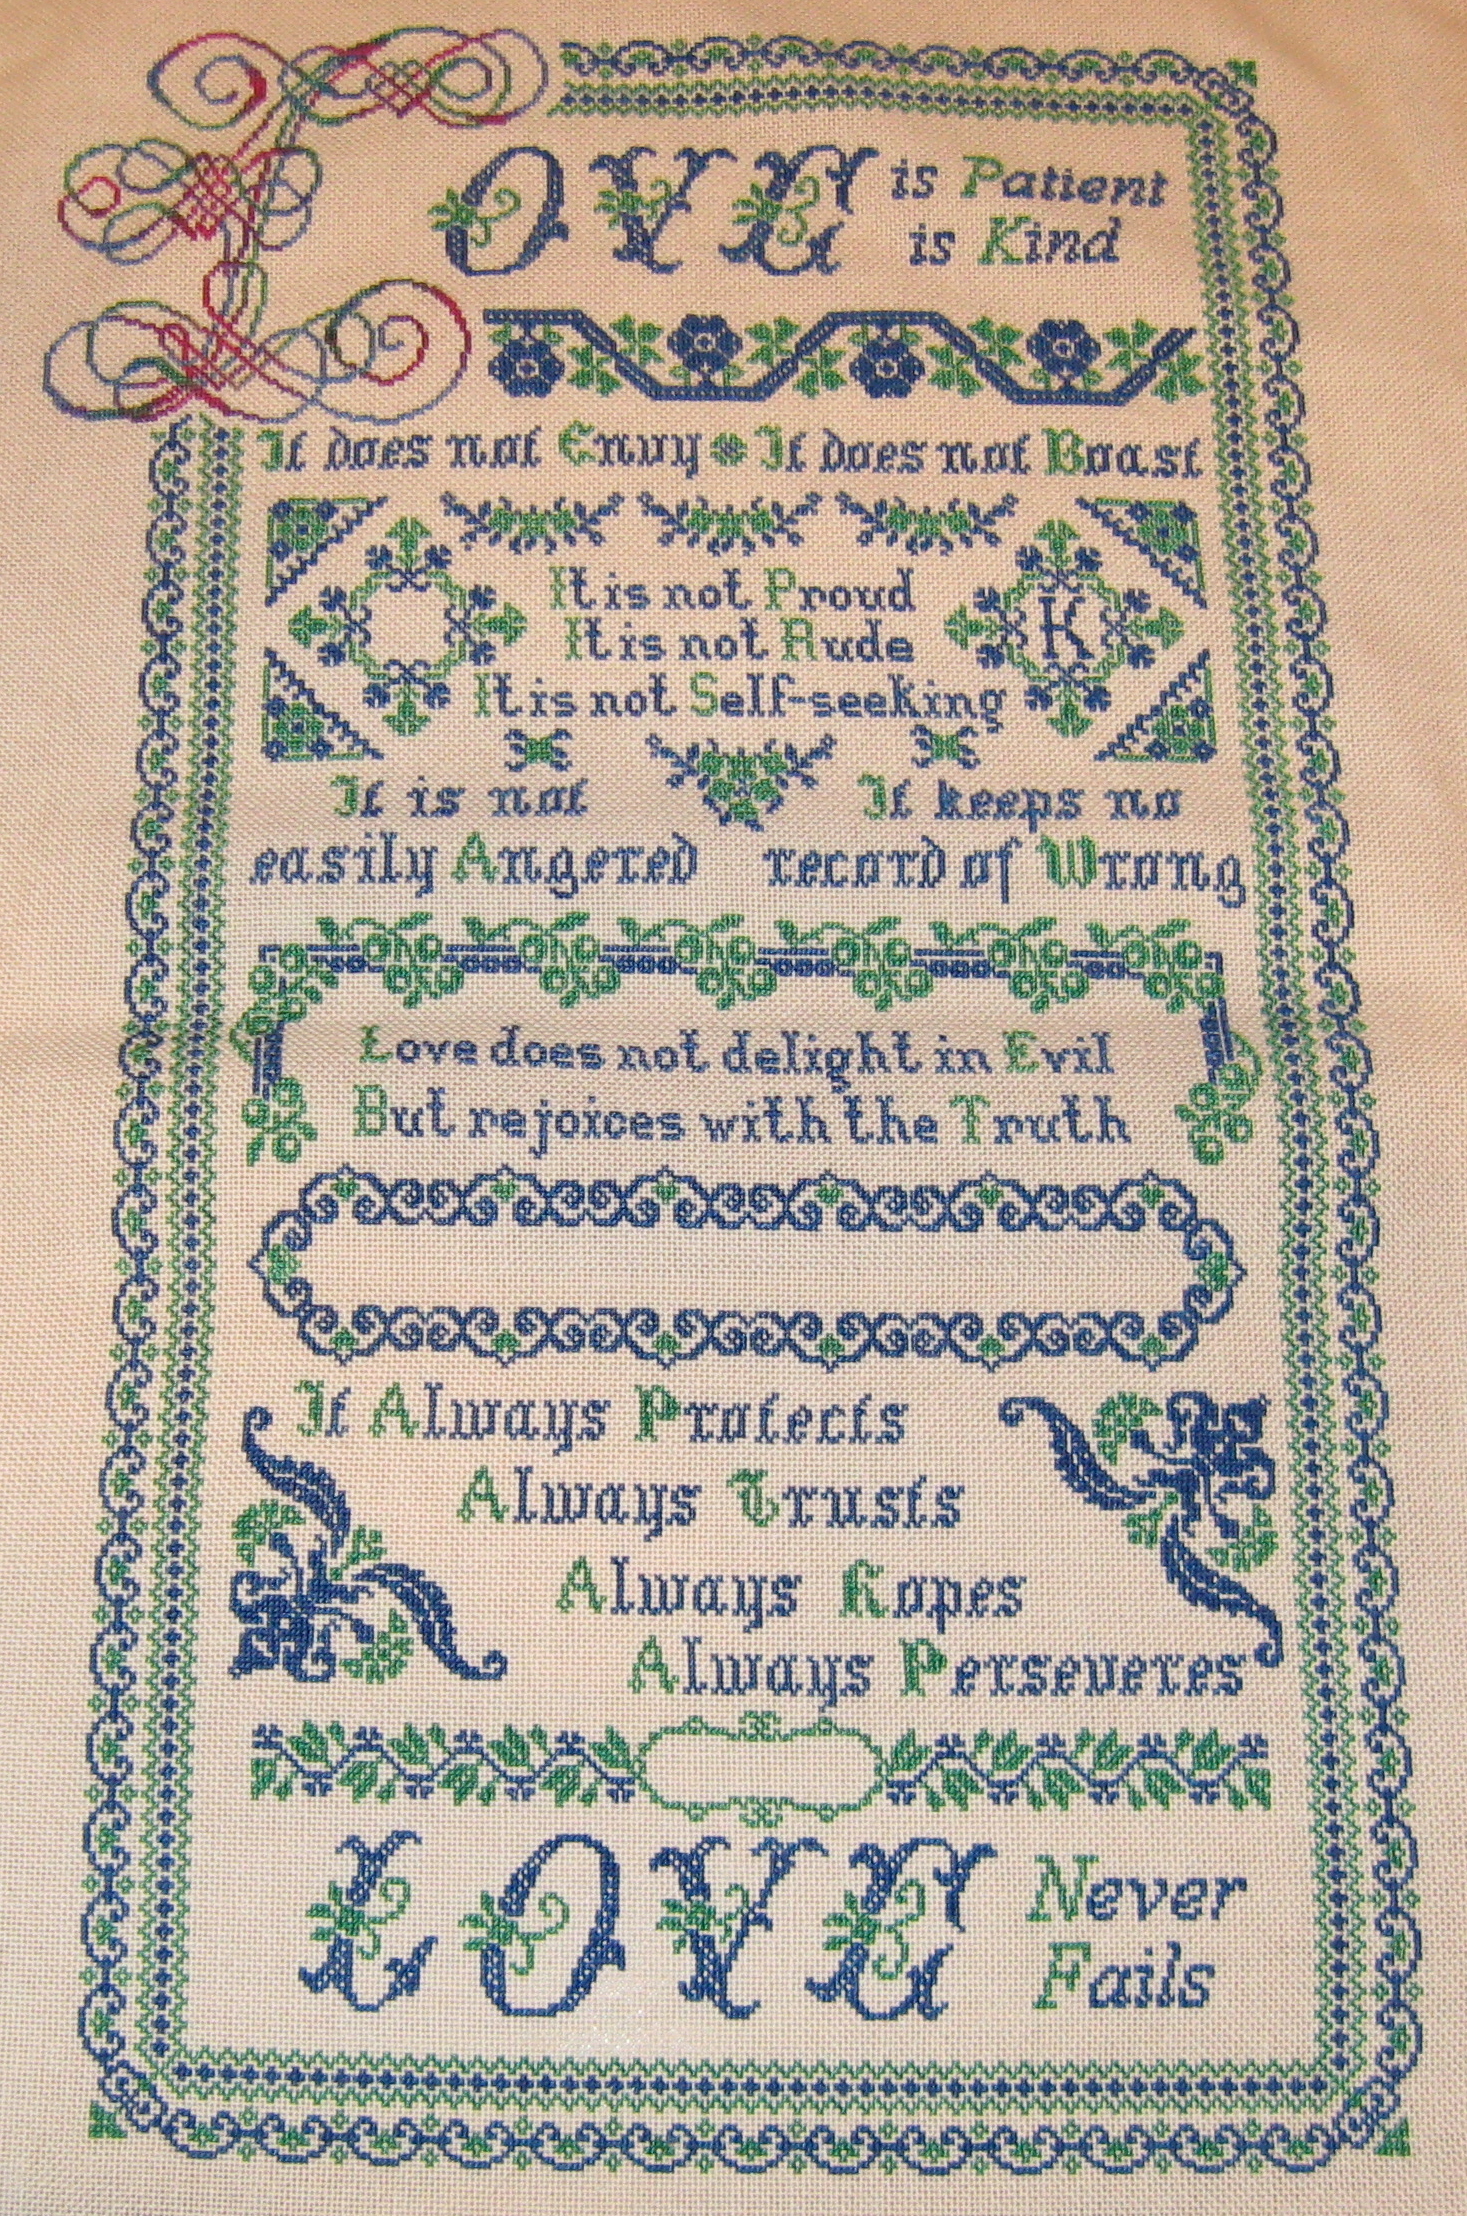 LOVE is Patient
is Kind
It does not Envy It does not Boast
It is not Proud
It is not Rude
K
It is not Self-seeking
It is not It keeps no
easily Angered record of Wrong
Love does not delight in Evil
But rejoices with the Truth
It Always Protects
Always Trusts
Always Hopes
Always Perseveres
LOVE Never
Fails